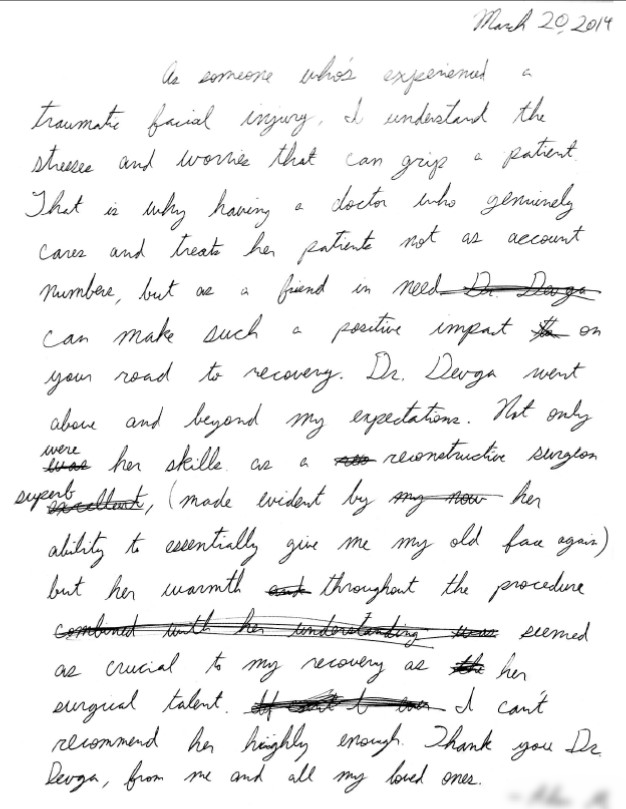 March 20, 2014
As someone who's experienced a
traumatic facial injury, I understand the
stresses and worries that can grip a patient.
That is why having a doctor who genuinely
cares and treats her patients not as account
numbers, but as a friend in need Dr. Devga
can make such a positive impact to on
your road to recovery. Dr. Devga went
above and beyond my expectations. Not only
were
was her skills as a reconstructive surgeon
superb
excellent, (made evident by my now her
ability to essentially give me my old face again)
but her warmth and throughout the procedure
combined with her understanding was seemed
as crucial to my recovery as the her
surgical talent. I can't
recommend her highly enough. Thank you Dr.
Devga, from me and all my loved ones.